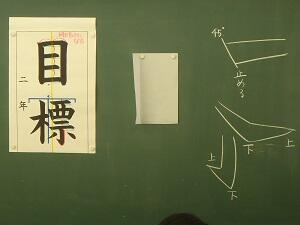 目標
二年
45°
止める
上
下
下
上